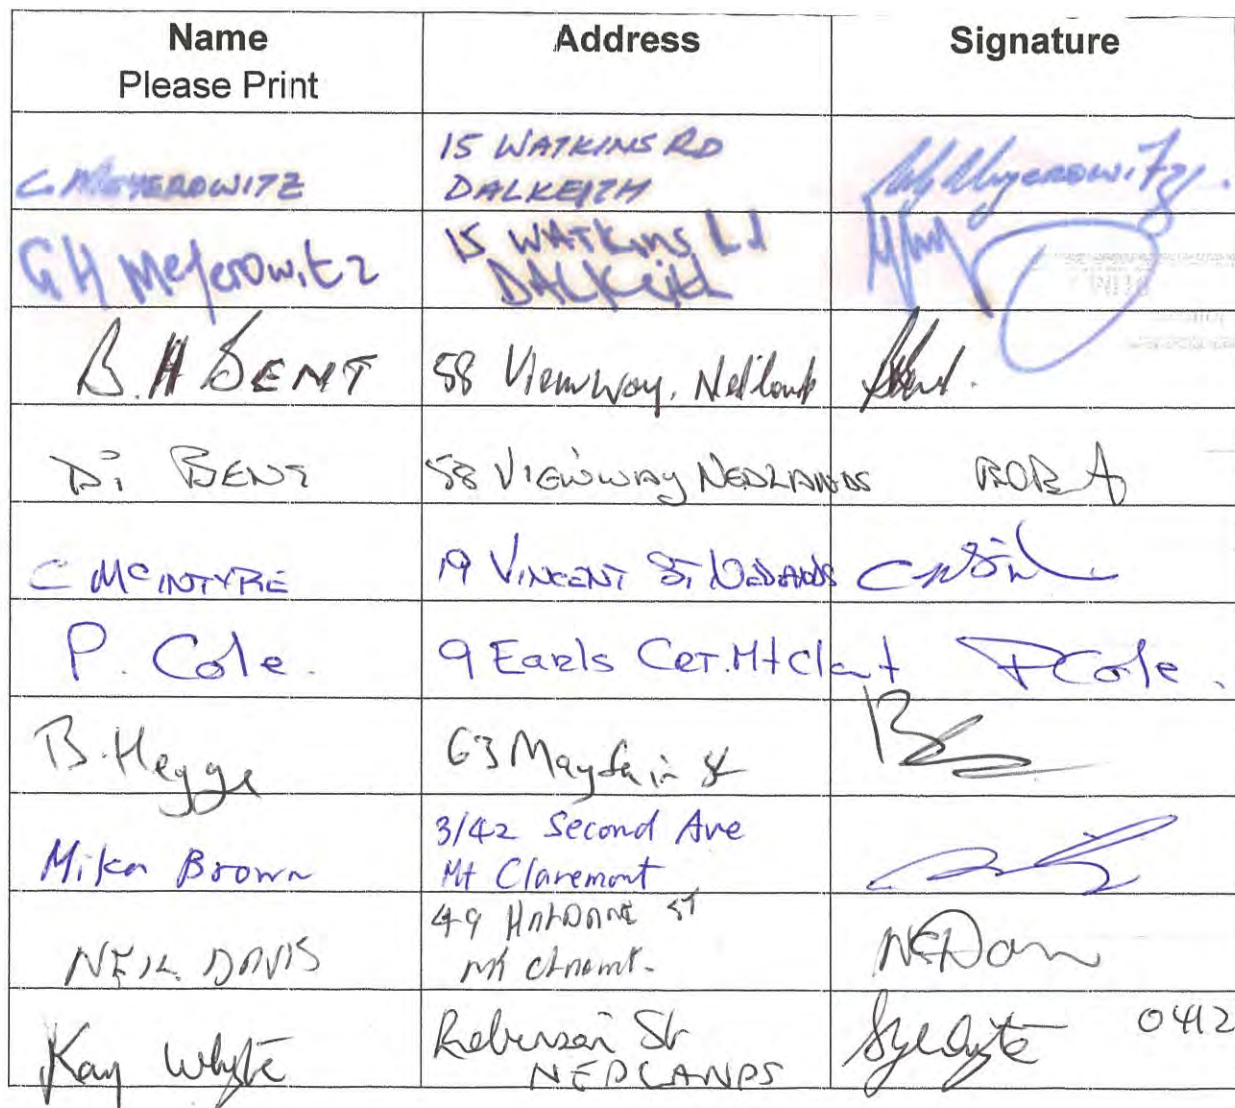 Name Address Signature
Please Print
C. MEYEROWITZ 15 WATKINS RD
DALKEITH Meyerowitz.
GH Meyerowitz 15 WATKINS Rd
DALKeith
B. H BENT 58 Viewway, Nedlands
Di BENT 58 VIEWWAY NEDLANDS
C MCINTYRE 19 VINCENT ST NEDLANDS
P. Cole. 9 Earls Cer. Mt Clart PCole.
B. Hegge 63 Mayfair St
Mike Brown 3/42 Second Ave
Mt Claremont
NEIL DAVIS 49 HALDANE ST
Mt
Kay Whyte Robinson St 0412
NEDLANDS